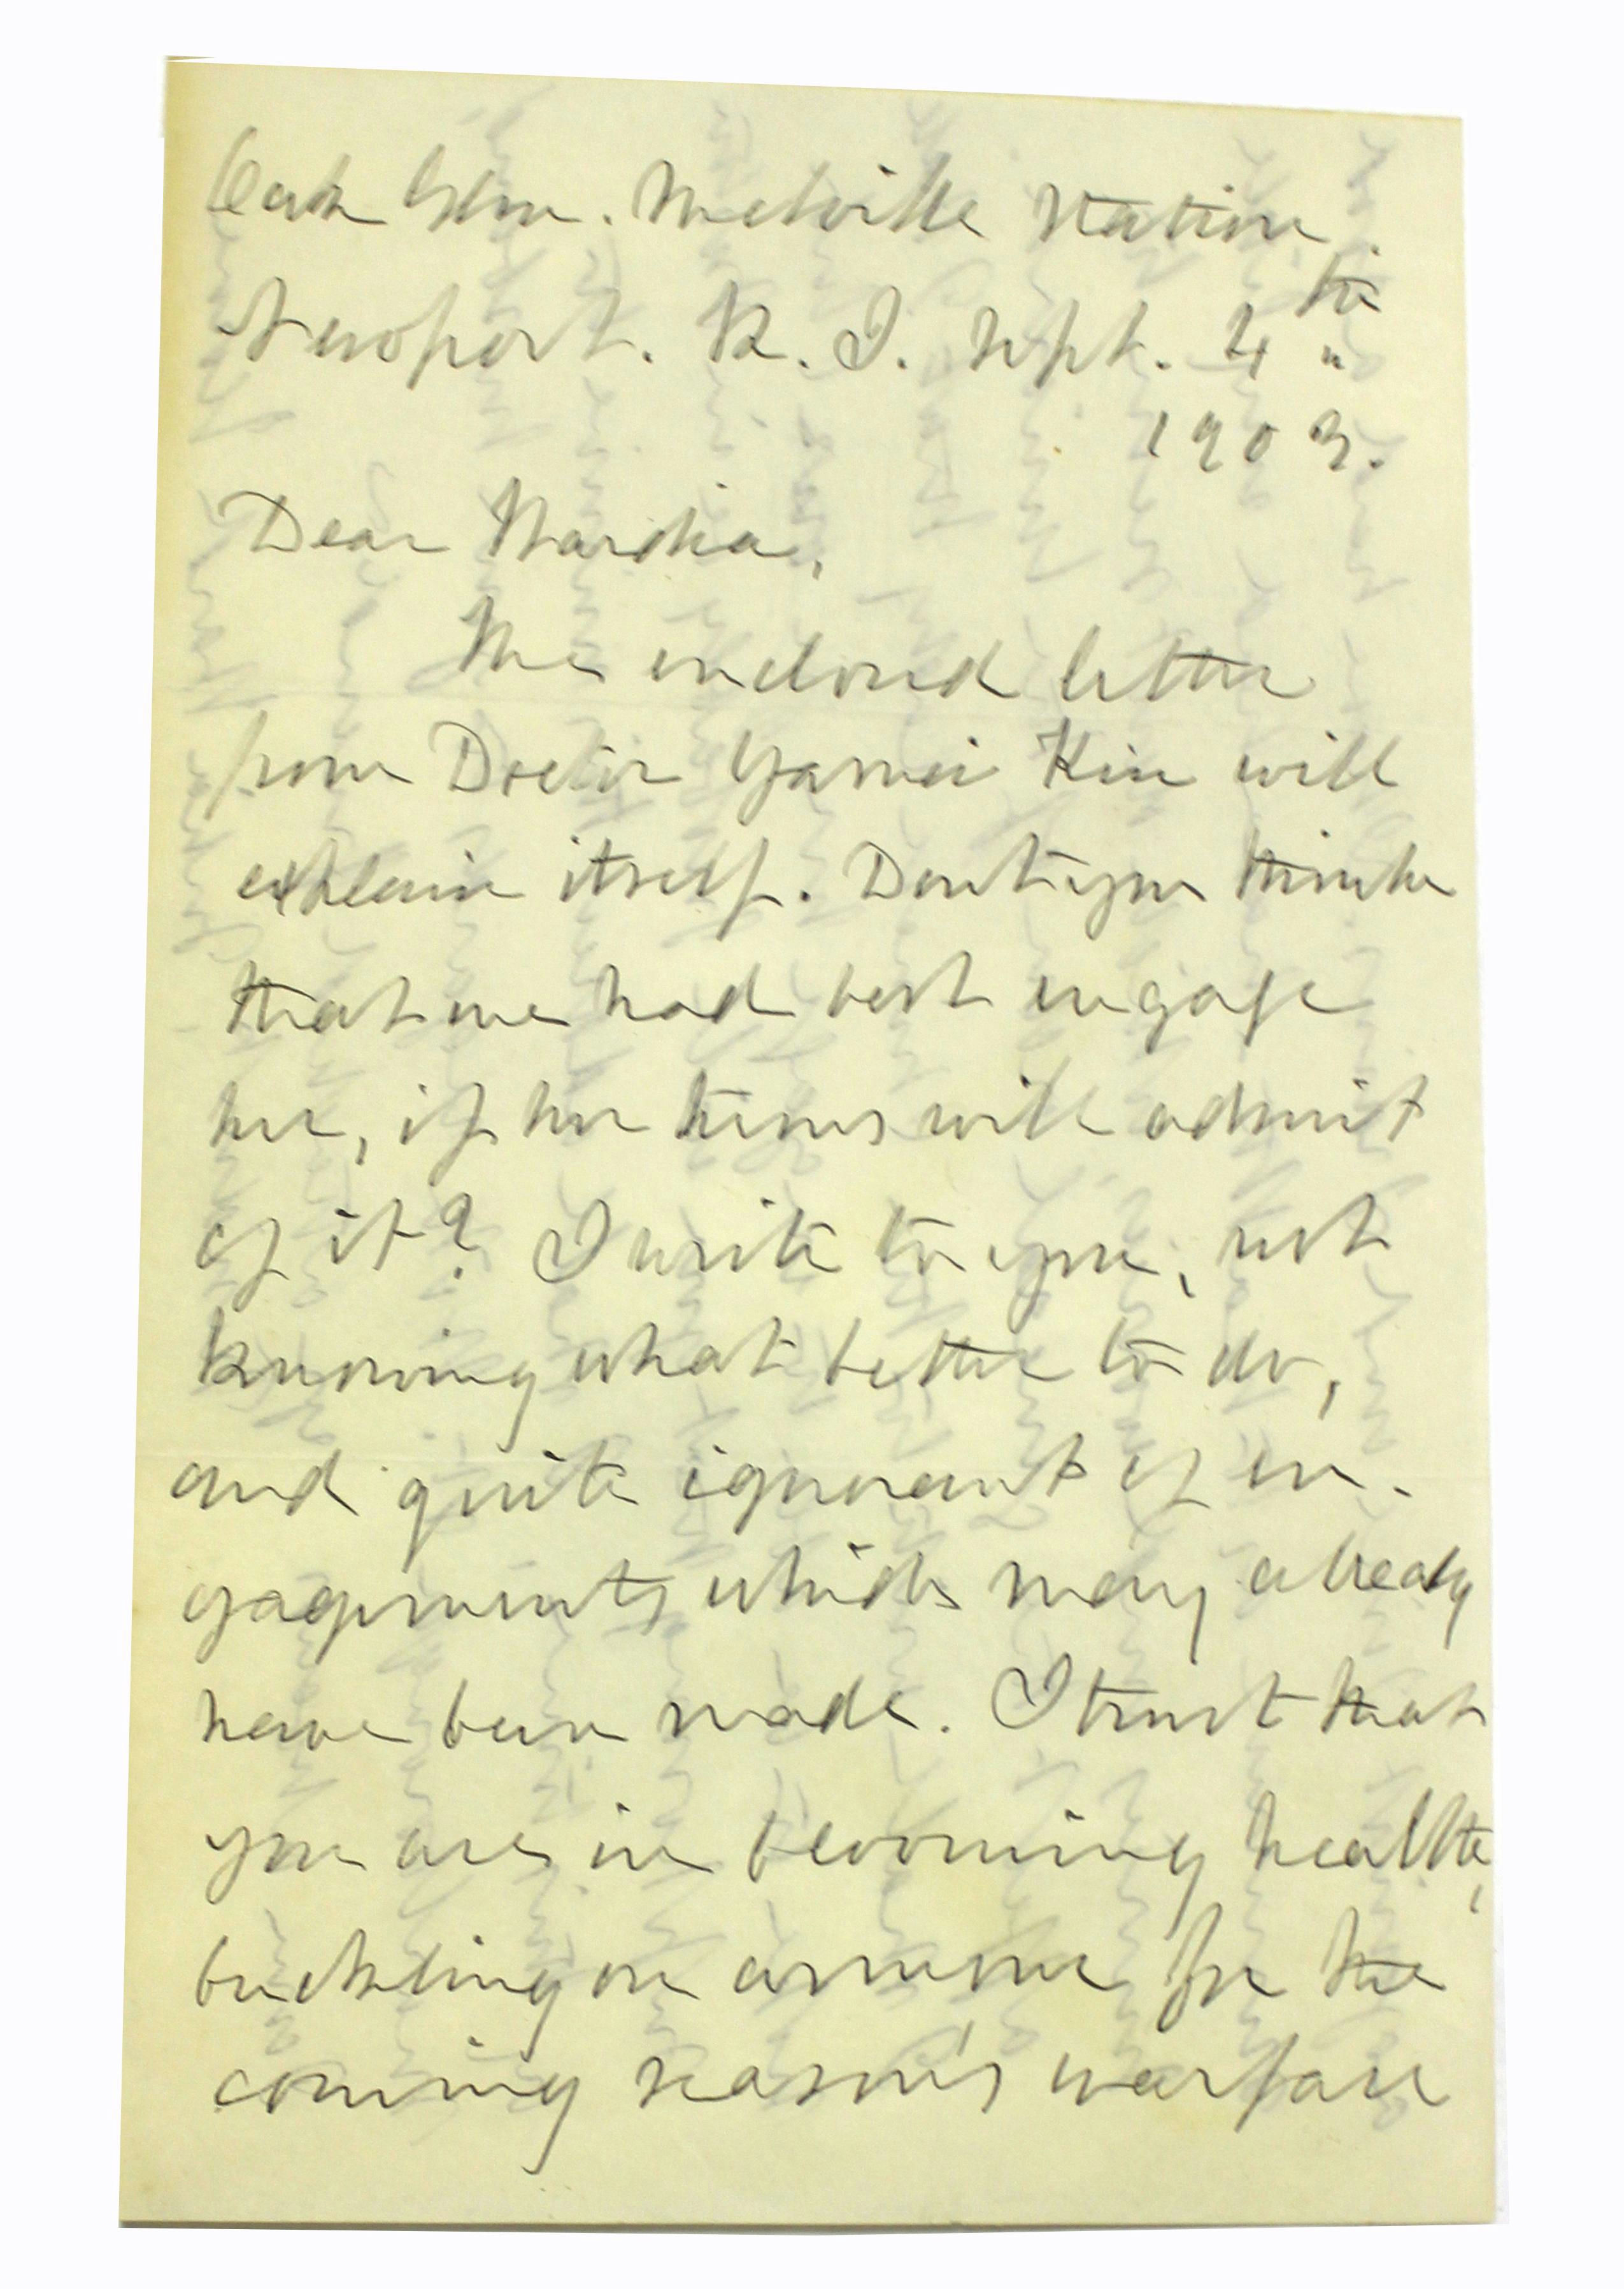 Oak Glen. Melville Station.
Newport. R. I. Sept. 4th
1903.
Dear Martha,
The enclosed letter
from Doctor Yamei Kin will
explain itself. Dont you think
that we had best engage
her, if her terms will admit
of it? I write to you, not
knowing what better to do,
and quite ignorant of en-
gagements which may already
have been made. I trust that
you are in blooming health,
buckling on armour for the
coming season's warfare